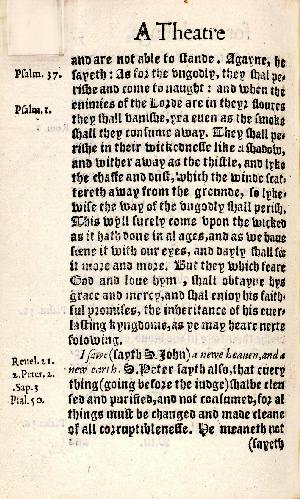 A Theatre
and are not able to stande. Agayne, he
Psalm. 37. sayeth: As for the vngodly, they shal pe-
rishe and come to naught: and when the
Psalm. 1. enimies of the Lorde are in theyr floures
they shall vanishe, yea euen as the smoke
shall they consume away. They shall pe-
rishe in their wickednesse like a shadow,
and wither away as the thistle, and lyke
the chaffe and dust, which the winde scat-
tereth away from the grounde, so lyke-
wise the way of the vngodly shall perish.
This wyll surely come vpon the wicked
as it hath done in al ages, and as we haue
seene it with our eyes, and dayly shall see
it more and more. But they which feare
God and loue hym, shall obtayne hys
grace and mercy, and shal enioy his faith-
ful promises, the inheritance of his euer-
lasting kyngdome, as ye may heare nexte
folowing.
Reuel. 21. I sawe (sayth S. John) a newe heauen, and a
2. Peter. 2. new earth. S. Peter sayth also, that euery
Sap. 5 thing (going before the iudge) shalbe clen-
Psal. 50. sed and purified, and not consumed, for al
things must be changed and made cleane
of all corruptiblenesse. He meaneth not
(sayeth